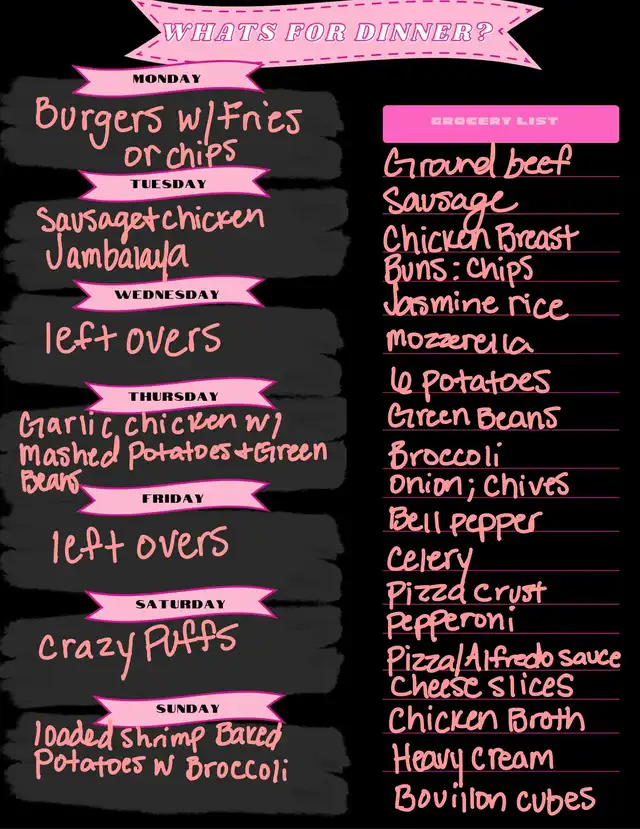 WHATS FOR DINNER?
MONDAY
Burgers w/ Fries
or chips
TUESDAY
Sausage+chicken
Jambalaya
WEDNESDAY
left overs
THURSDAY
Garlic chicken w/
Mashed Potatoes+Green
Beans
FRIDAY
left overs
SATURDAY
crazy Puffs
SUNDAY
loaded shrimp Baked
Potatoes w Broccoli
GROCERY LIST
Ground beef
Sausage
Chicken Breast
Buns : chips
Jasmine rice
mozzerella
6 potatoes
Green Beans
Broccoli
onion ; chives
Bell pepper
celery
Pizza crust
Pepperoni
Pizza/Alfredo sauce
Cheese slices
Chicken Broth
Heavy cream
Bouillon cubes